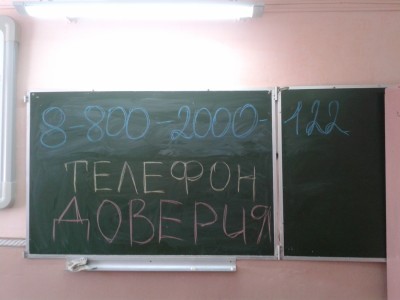 8-800-2000-122
ТЕЛЕФОН
ДОВЕРИЯ